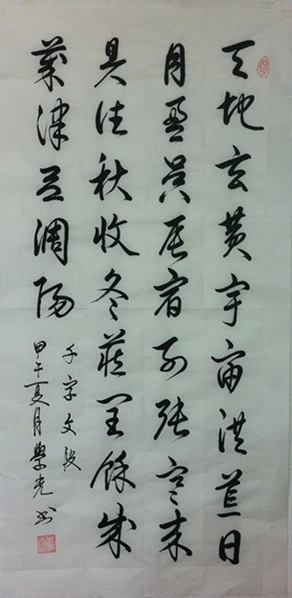 天地玄黄宇宙洪荒日
月盈昃辰宿列張寒来
暑往秋收冬藏閏餘成
歲律吕調陽
千字文段
甲午夏月學光书